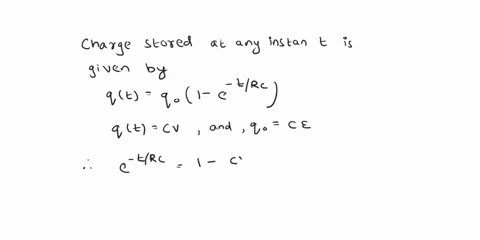 Charge stored at any instan t is
given by
q(t) = q₀ (1 - e^-t/RC)
q(t) = CV , and, q₀ = Cε
∴ e^-t/RC = 1 - C